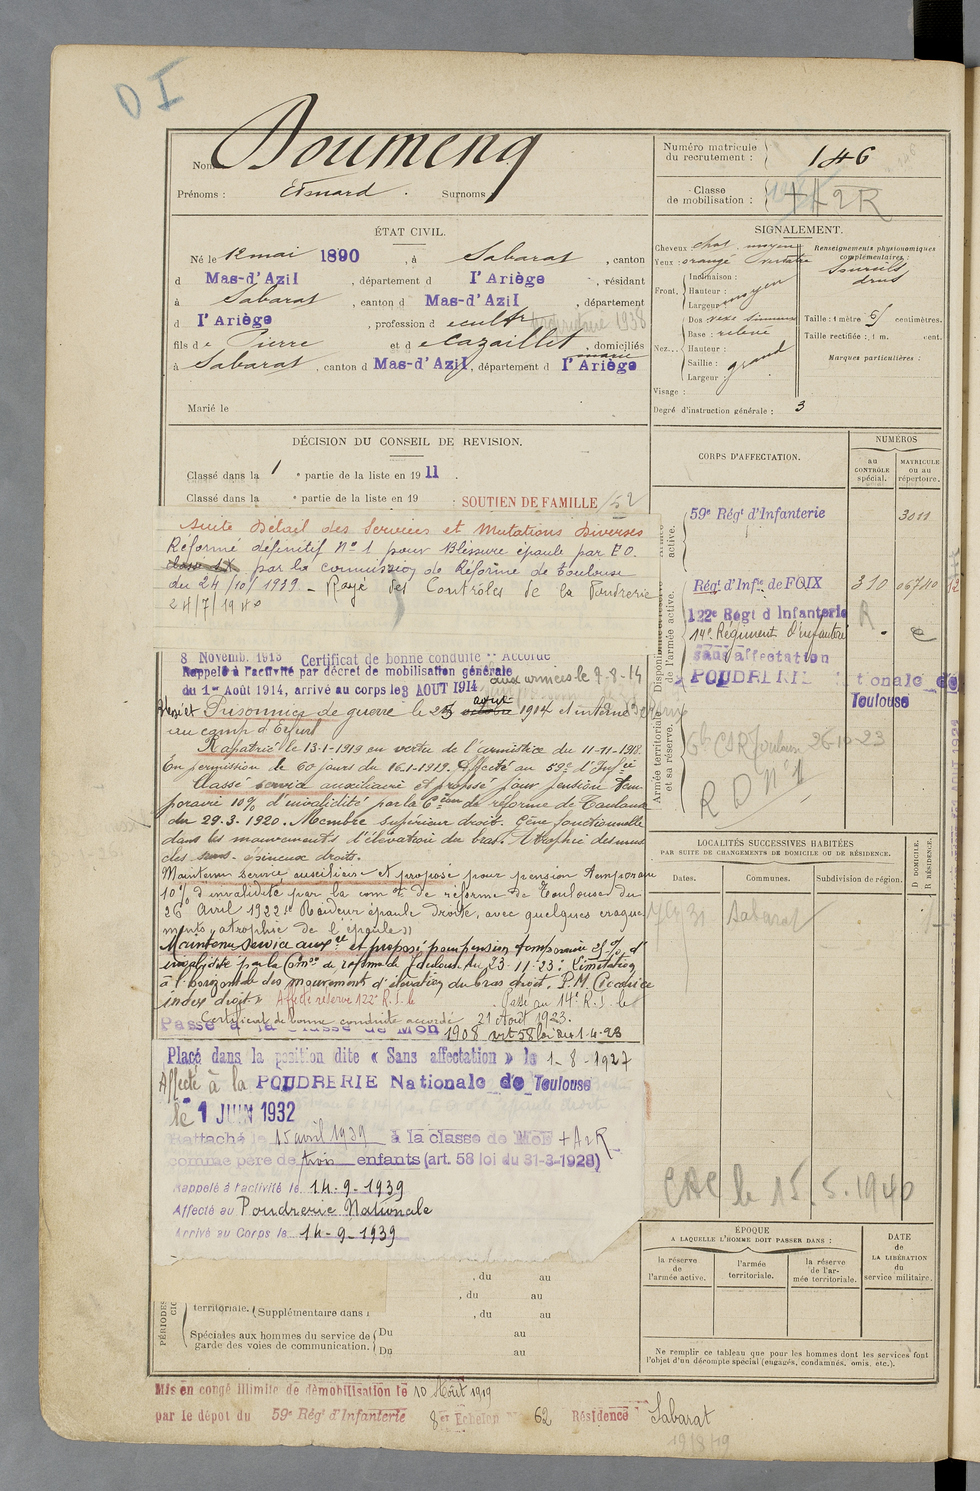 D I
Nom Doumenq
Prénoms : Edmond . Surnoms
Numéro matricule du recrutement : 146
Classe de mobilisation : + A 2 R
ÉTAT CIVIL.
Né le 12 mai 1890 , à Sabarat , canton
d Mas-d'Azil , département d l'Ariège , résidant
à Sabarat , canton d Mas-d'Azil , département
d l'Ariège , profession d 1938
fils de Pierre et de Cazaillet , domiciliés
à Sabarat , canton d Mas-d'Azil , département d l'Ariège
Marié le
SIGNALEMENT.
Cheveux chat. moyen
Yeux : orangé verdâtre
Front. Inclinaison :
Hauteur :
Largeur moyen
Nez... Dos vexe sinueux
Base : relevé
Hauteur :
Saillie : grand
Largeur :
Visage :
Degré d'instruction générale : 3
Renseignements physionomiques complémentaires :
Sourcils drus
Taille : 1 mètre 65 centimètres.
Taille rectifiée : 1 m. cent.
Marques particulières :
DÉCISION DU CONSEIL DE REVISION.
Classé dans la 1 e partie de la liste en 19 11 .
Classé dans la e partie de la liste en 19 . SOUTIEN DE FAMILLE 52
Suite Détail des Services et Mutations Diverses
Réformé définitif N° 1 pour Blessure épaule par E.O.
par la commission de Réforme de Toulouse
du 24/10/1939 _ Rayé des Contrôles de la Poudrerie
24/7/1940
8 Novemb. 1913 Certificat de bonne conduite : Accordé
Rappelé à l'activité par décret de mobilisation générale
du 1er Août 1914, arrivé au corps le 3 AOUT 1914 aux armées le 9-8-14
Blessé et Prisonnier de guerre le 25 octobre août 1914 et interné
au camp d'Erfurt
Rapatrié le 13-1-1919 en vertu de l'armistice du 11-11-1918.
En permission de 60 jours du 16-1-1919. Affecté au 59e d'Infrie
Classé service auxiliaire et proposé pour pension tem-
poraire 10% d'invalidité par la Con de réforme de Toulouse
du 29.3.1920. Membre supérieur droit. Gêne fonctionnelle
dans les mouvements d'élévation du bras. Atrophie des mus
cles sous-épineux droits.
Maintenu service auxiliaire et proposé pour pension temporaire
10% d'invalidité par la comon de réforme de Toulouse du
26 Avril 1922 "Raideur épaule droite, avec quelques craque
ments, atrophie de l'épaule"
Maintenu service auxre et proposé pour pension temporaire d'
invalidité par la Comon de réforme de Toulouse du 23-11-23 : Limitation
à l'horizontale des mouvements d'élévation du bras droit. P.M. Cicatrice
index droit. Affecté réserve 122e R.I. le Passé au 14e R.I. le
Certificat de bonne conduite accordé 21 Août 1923.
Passé à la Classe de Mon 1908 art 58 loi du 1-4-23
Placé dans la position dite « Sans affectation » le 1-8-1927
Affecté à la POUDRERIE Nationale de Toulouse
le 1 JUIN 1932
Rattaché le 15 avril 1939 à la classe de MoB + A2R
comme père de trois enfants (art. 58 loi du 31-3-1928)
Rappelé à l'activité le 14-9-1939
Affecté au Poudrerie Nationale
Arrivé au Corps le 14-9-1939
CORPS D'AFFECTATION.
NUMÉROS
au CONTRÔLE spécial.
MATRICULE ou au répertoire.
59e Régt d'Infanterie 3011
Régt d'Infie de FOIX 310 06740
122e Régt d'Infanterie R
14e Régiment d'infanterie
sans affectation
POUDRERIE Nationale de
Toulouse
26-10-23
R D N° 1
active.
Disponibilité et réserve de l'armée active.
Armée territoriale et sa réserve.
LOCALITÉS SUCCESSIVES HABITÉES
PAR SUITE DE CHANGEMENTS DE DOMICILE OU DE RÉSIDENCE.
Dates.
Communes.
Subdivision de région.
D DOMICILE.
R RÉSIDENCE.
31 Sabarat
CAC le 15.5.1940
ÉPOQUE
A LAQUELLE L'HOMME DOIT PASSER DANS :
la réserve de l'armée active.
l'armée territoriale.
la réserve de l'armée territoriale.
DATE de LA LIBÉRATION du service militaire.
Ne remplir ce tableau que pour les hommes dont les services font l'objet d'un décompte spécial (engagés, condamnés, omis, etc.).
, du au
, du au
territoriale. Supplémentaire dans l , du au
Spéciales aux hommes du service de garde des voies de communication. Du au
Du au
PÉRIODES
Mis en congé illimité de démobilisation le 10 Août 1919
par le dépôt du 59e Régt d'Infanterie 8e Echelon N° 62 Résidence Sabarat
19/8/19